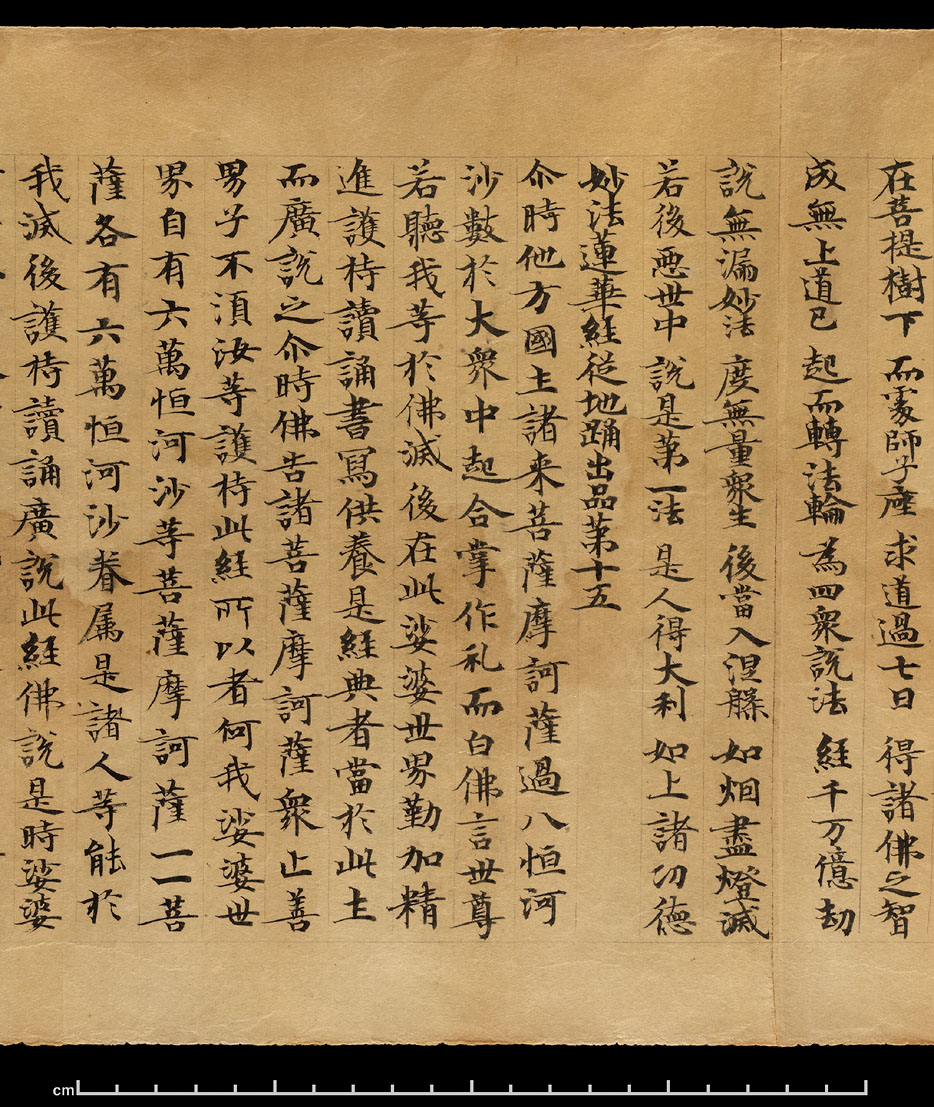 在菩提樹下 而處師子座 求道過七日 得諸佛之智
成無上道已 起而轉法輪 為四衆說法 經千万億劫
說無漏妙法 度無量衆生 後當入涅槃 如烟盡燈滅
若後悪世中 說是苐一法 是人得大利 如上諸功德
妙法蓮華經從地踊出品苐十五
尒時他方國土諸来菩薩摩訶薩過八恒河
沙數於大衆中起合掌作礼而白佛言世尊
若聽我等於佛滅後在此娑婆世界勤加精
進護持讀誦書冩供養是經典者當於此土
而廣說之尒時佛告諸菩薩摩訶薩衆止善
男子不湏汝等護持此經所以者何我娑婆世
界自有六萬恒河沙等菩薩摩訶薩一一菩
薩各有六萬恒河沙眷属是諸人等能於
我滅後護持讀誦廣說此經佛說是時娑婆
cm